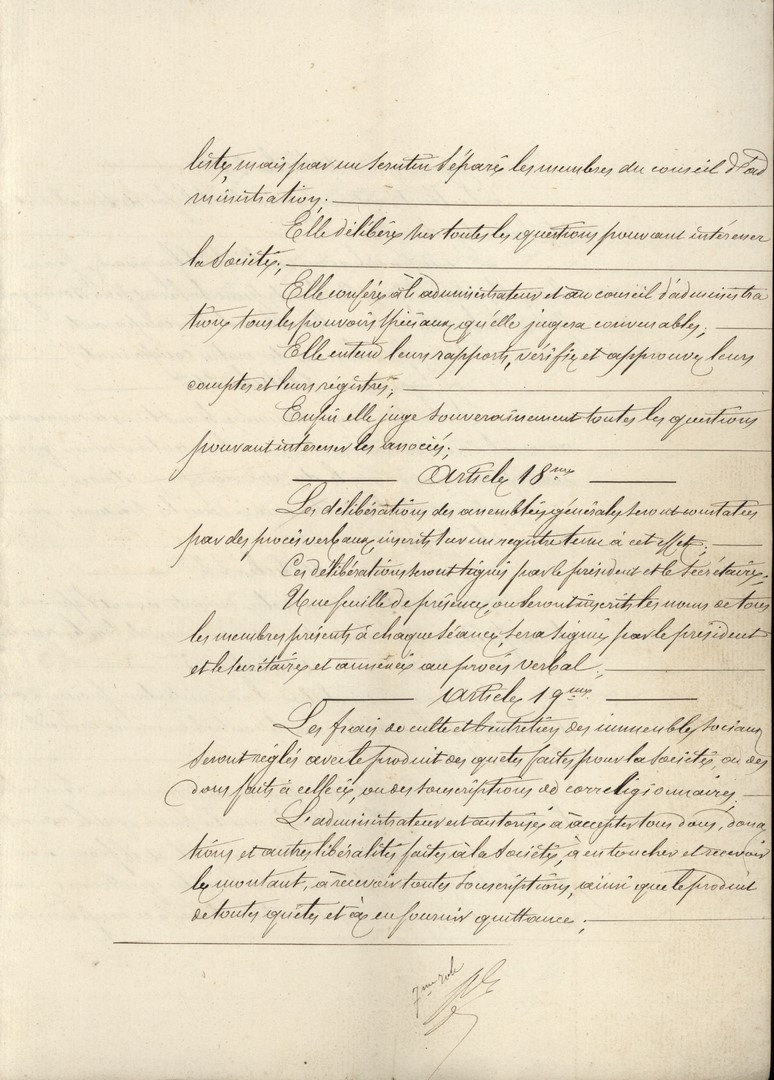 liste, mais par un scrutin séparé les membres du conseil d'ad
ministration;
Elle délibère sur toutes les questions pouvant intéresser
la Société;
Elle confère à l'administrateur et au conseil d'administra
tion tous les pouvoirs spéciaux qu'elle jugera convenables;
Elle entend leurs rapports, vérifie et approuve leurs
comptes et leurs régistres;
Enfin elle juge souverainement toutes les questions
pouvant intéresser les associés;
Article 18me
Les délibérations des assemblées générales seront constatées
par des procès verbaux inscrits sur un registre tenu à cet effet;
Ces délibérations seront signés par le président et le Secrétaire;
Une feuille de présence, ou seront inscrits les noms de tous
les membres présents à chaque séance, sera signée par le président
et le secrétaire et annexée au procès verbal;
Article 19me
Les frais de culte et d'entretien des immeubles sociaux
seront réglés avec le produit des quetes faites pour la Société, ou des
dons faits à celle ci, ou des souscriptions de correligionnaires.
L'administrateur est autorisé à accepter tous dons, dona
tions et autres libéralités faites à la Société, à en toucher et recevoir
le montant, à recevoir toutes souscriptions, ainsi que le produit
de toutes quêtes et à en fournir quittance;
7me role